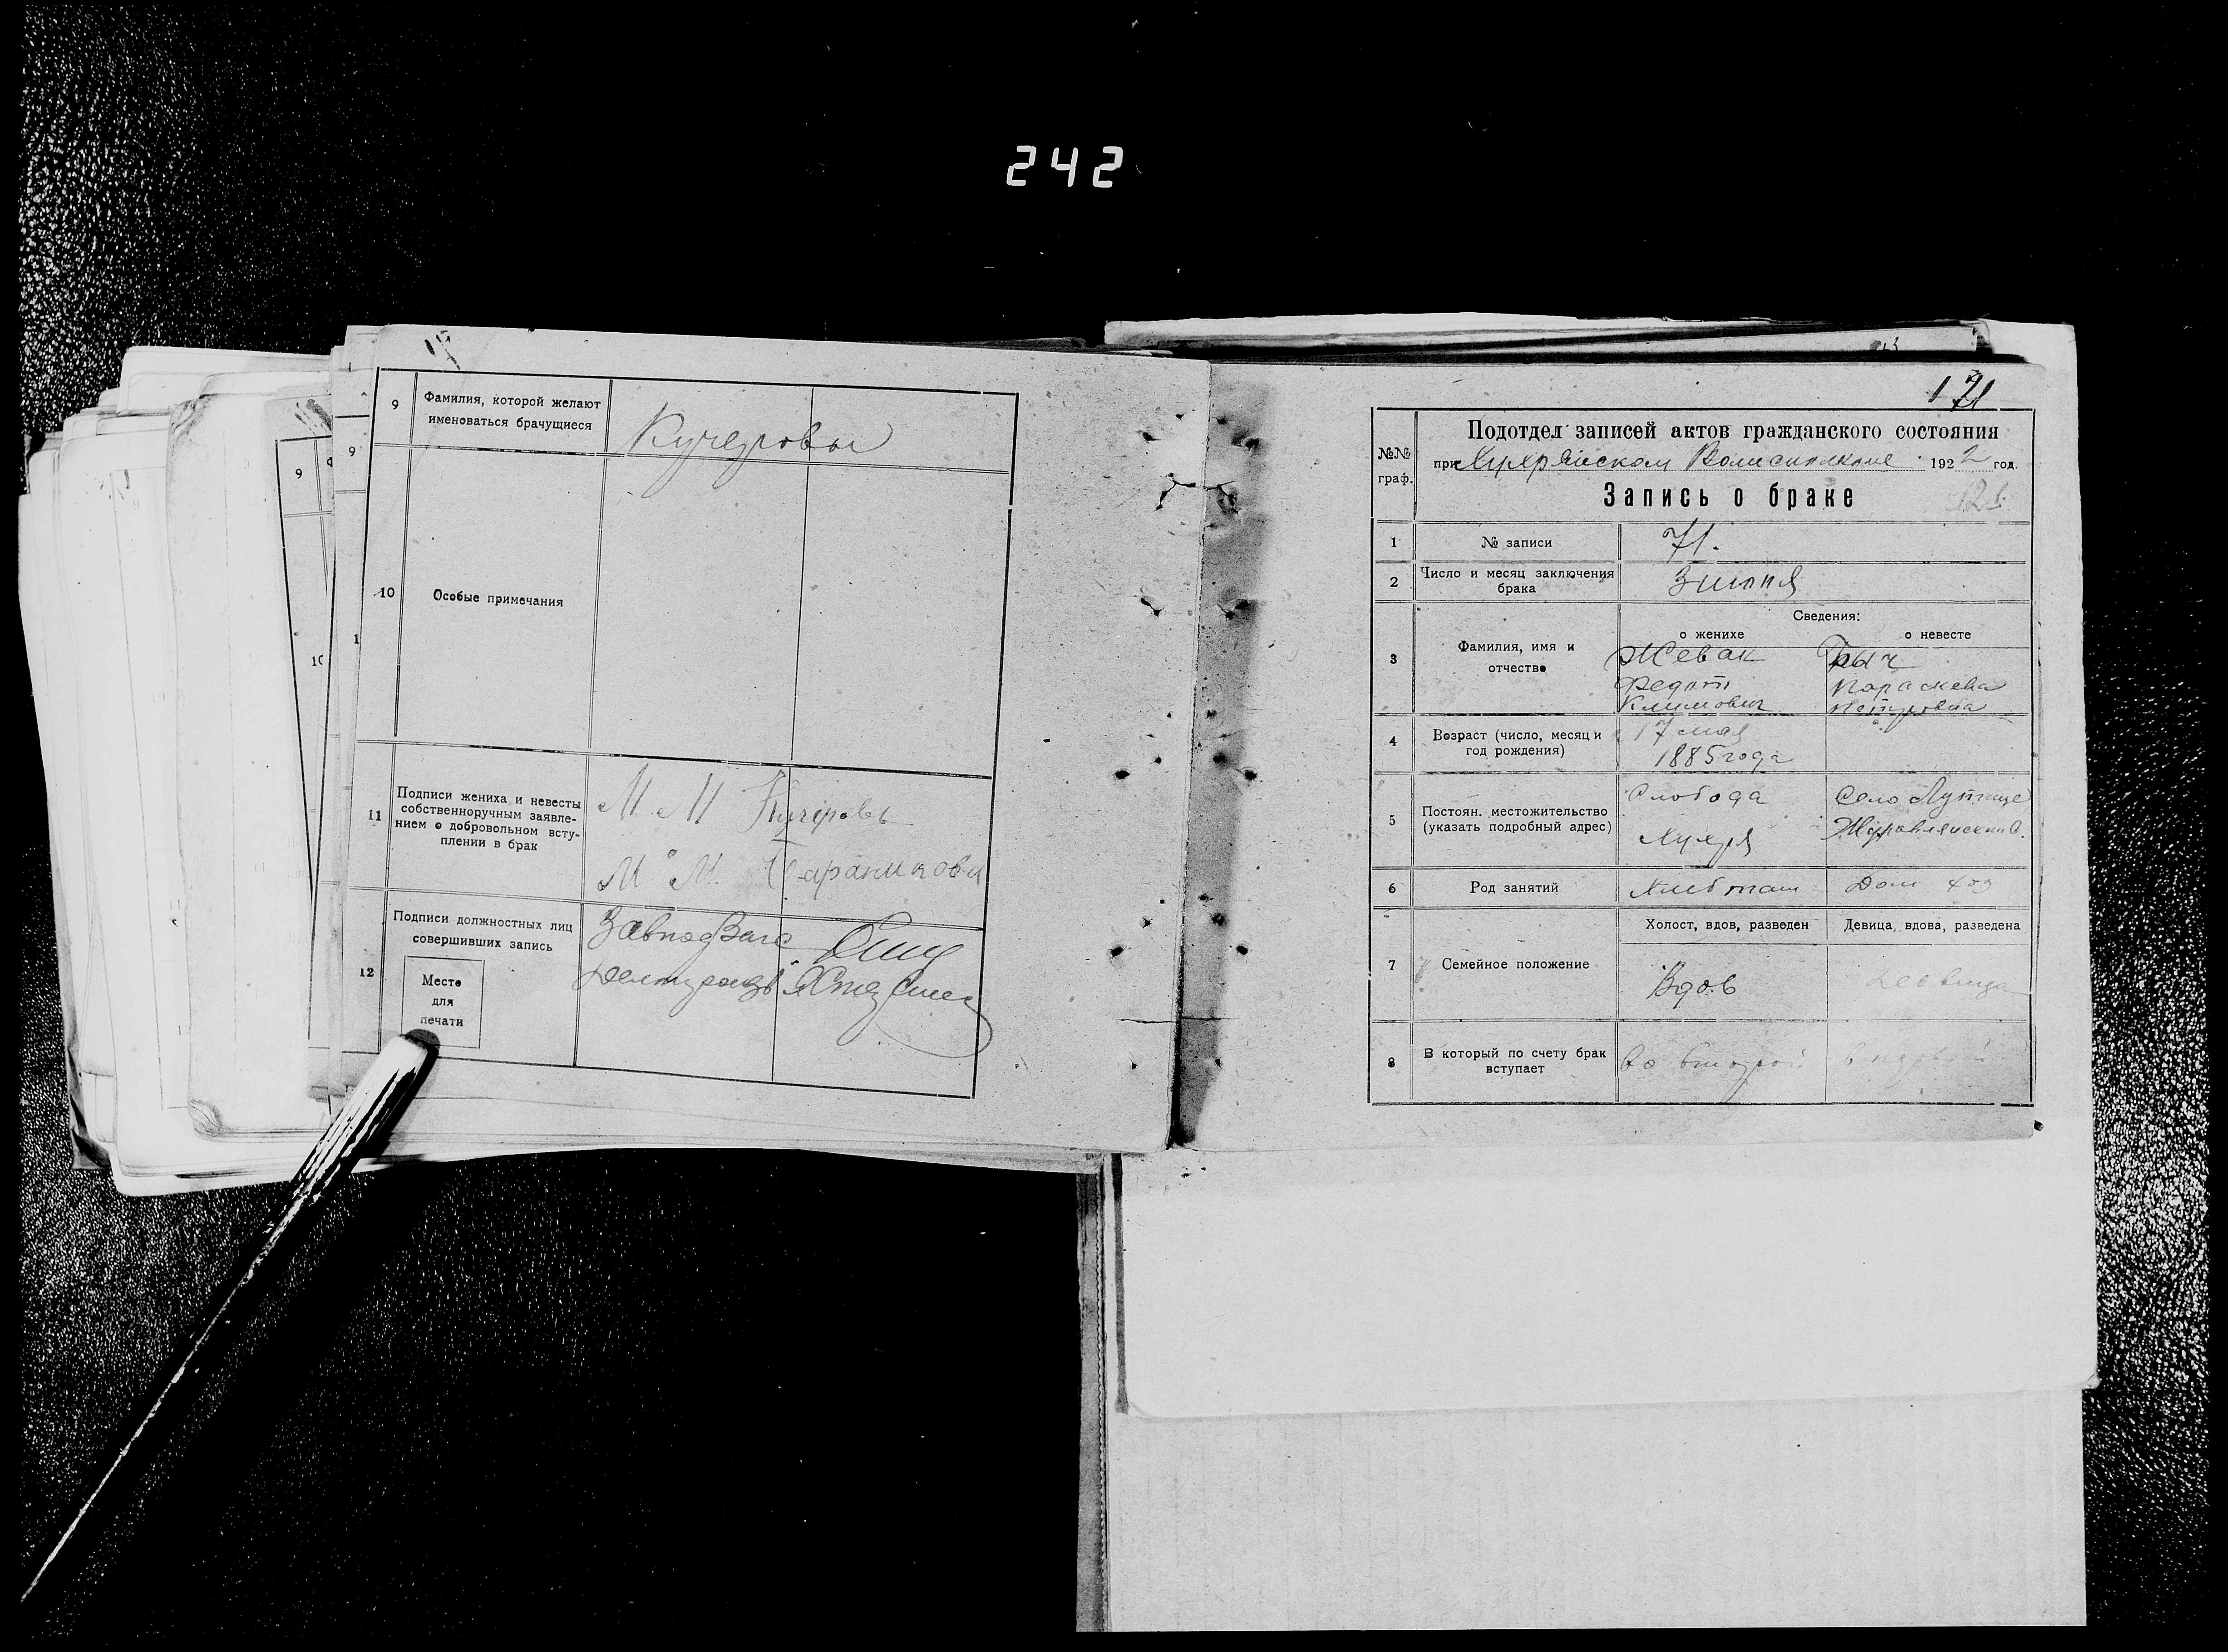 242
9
Фамилия, которой желают
именоваться брачущиеся
Кучеровы
10
Особые примечания
11
Подписи жениха и невесты
собственноручным заявле-
нием о добровольном всту-
плении в брак
М М Кучеровъ
М М.
12
Подписи должностных лиц
совершивших запись
ЗавподЗагс
Место
для
печати
9
10
9
1
171
№№
граф.
Подотдел записей актов гражданского состояния
при Волисполкоме 1922 год.
Запись о браке
1
№ записи
71.
2
Число и месяц заключения
брака
3 июня
3
Фамилия, имя и
отчество
Сведения:
о женихе
о невесте
Жевак
Федот
Климович
Параскева
Петровна
4
Возраст (число, месяц и
год рождения)
17 мая
1885 года
5
Постоян. местожительство
(указать подробный адрес)
Слобода
Хухря
Село
6
Род занятий
Хлебопаш
Дом хоз
7
Семейное положение
Холост, вдов, разведен
Девица, вдова, разведена
Вдов
девица
8
В который по счету брак
вступает
во второй
в первый